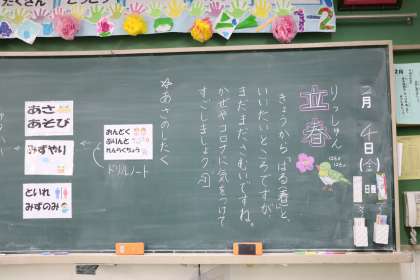 二月 4日(金)
日直
りっしゅん
立春
きょうから「はる(春)」と、
いいたいところですが
まだまださむいですね。
かぜやコロナに気をつけて
すごしましょう
☆あさのしたく
おんどく
ぷりんと
れんらくちょう
ドリルノート
あさ
あそび
みずやり
といれ
みずのみ